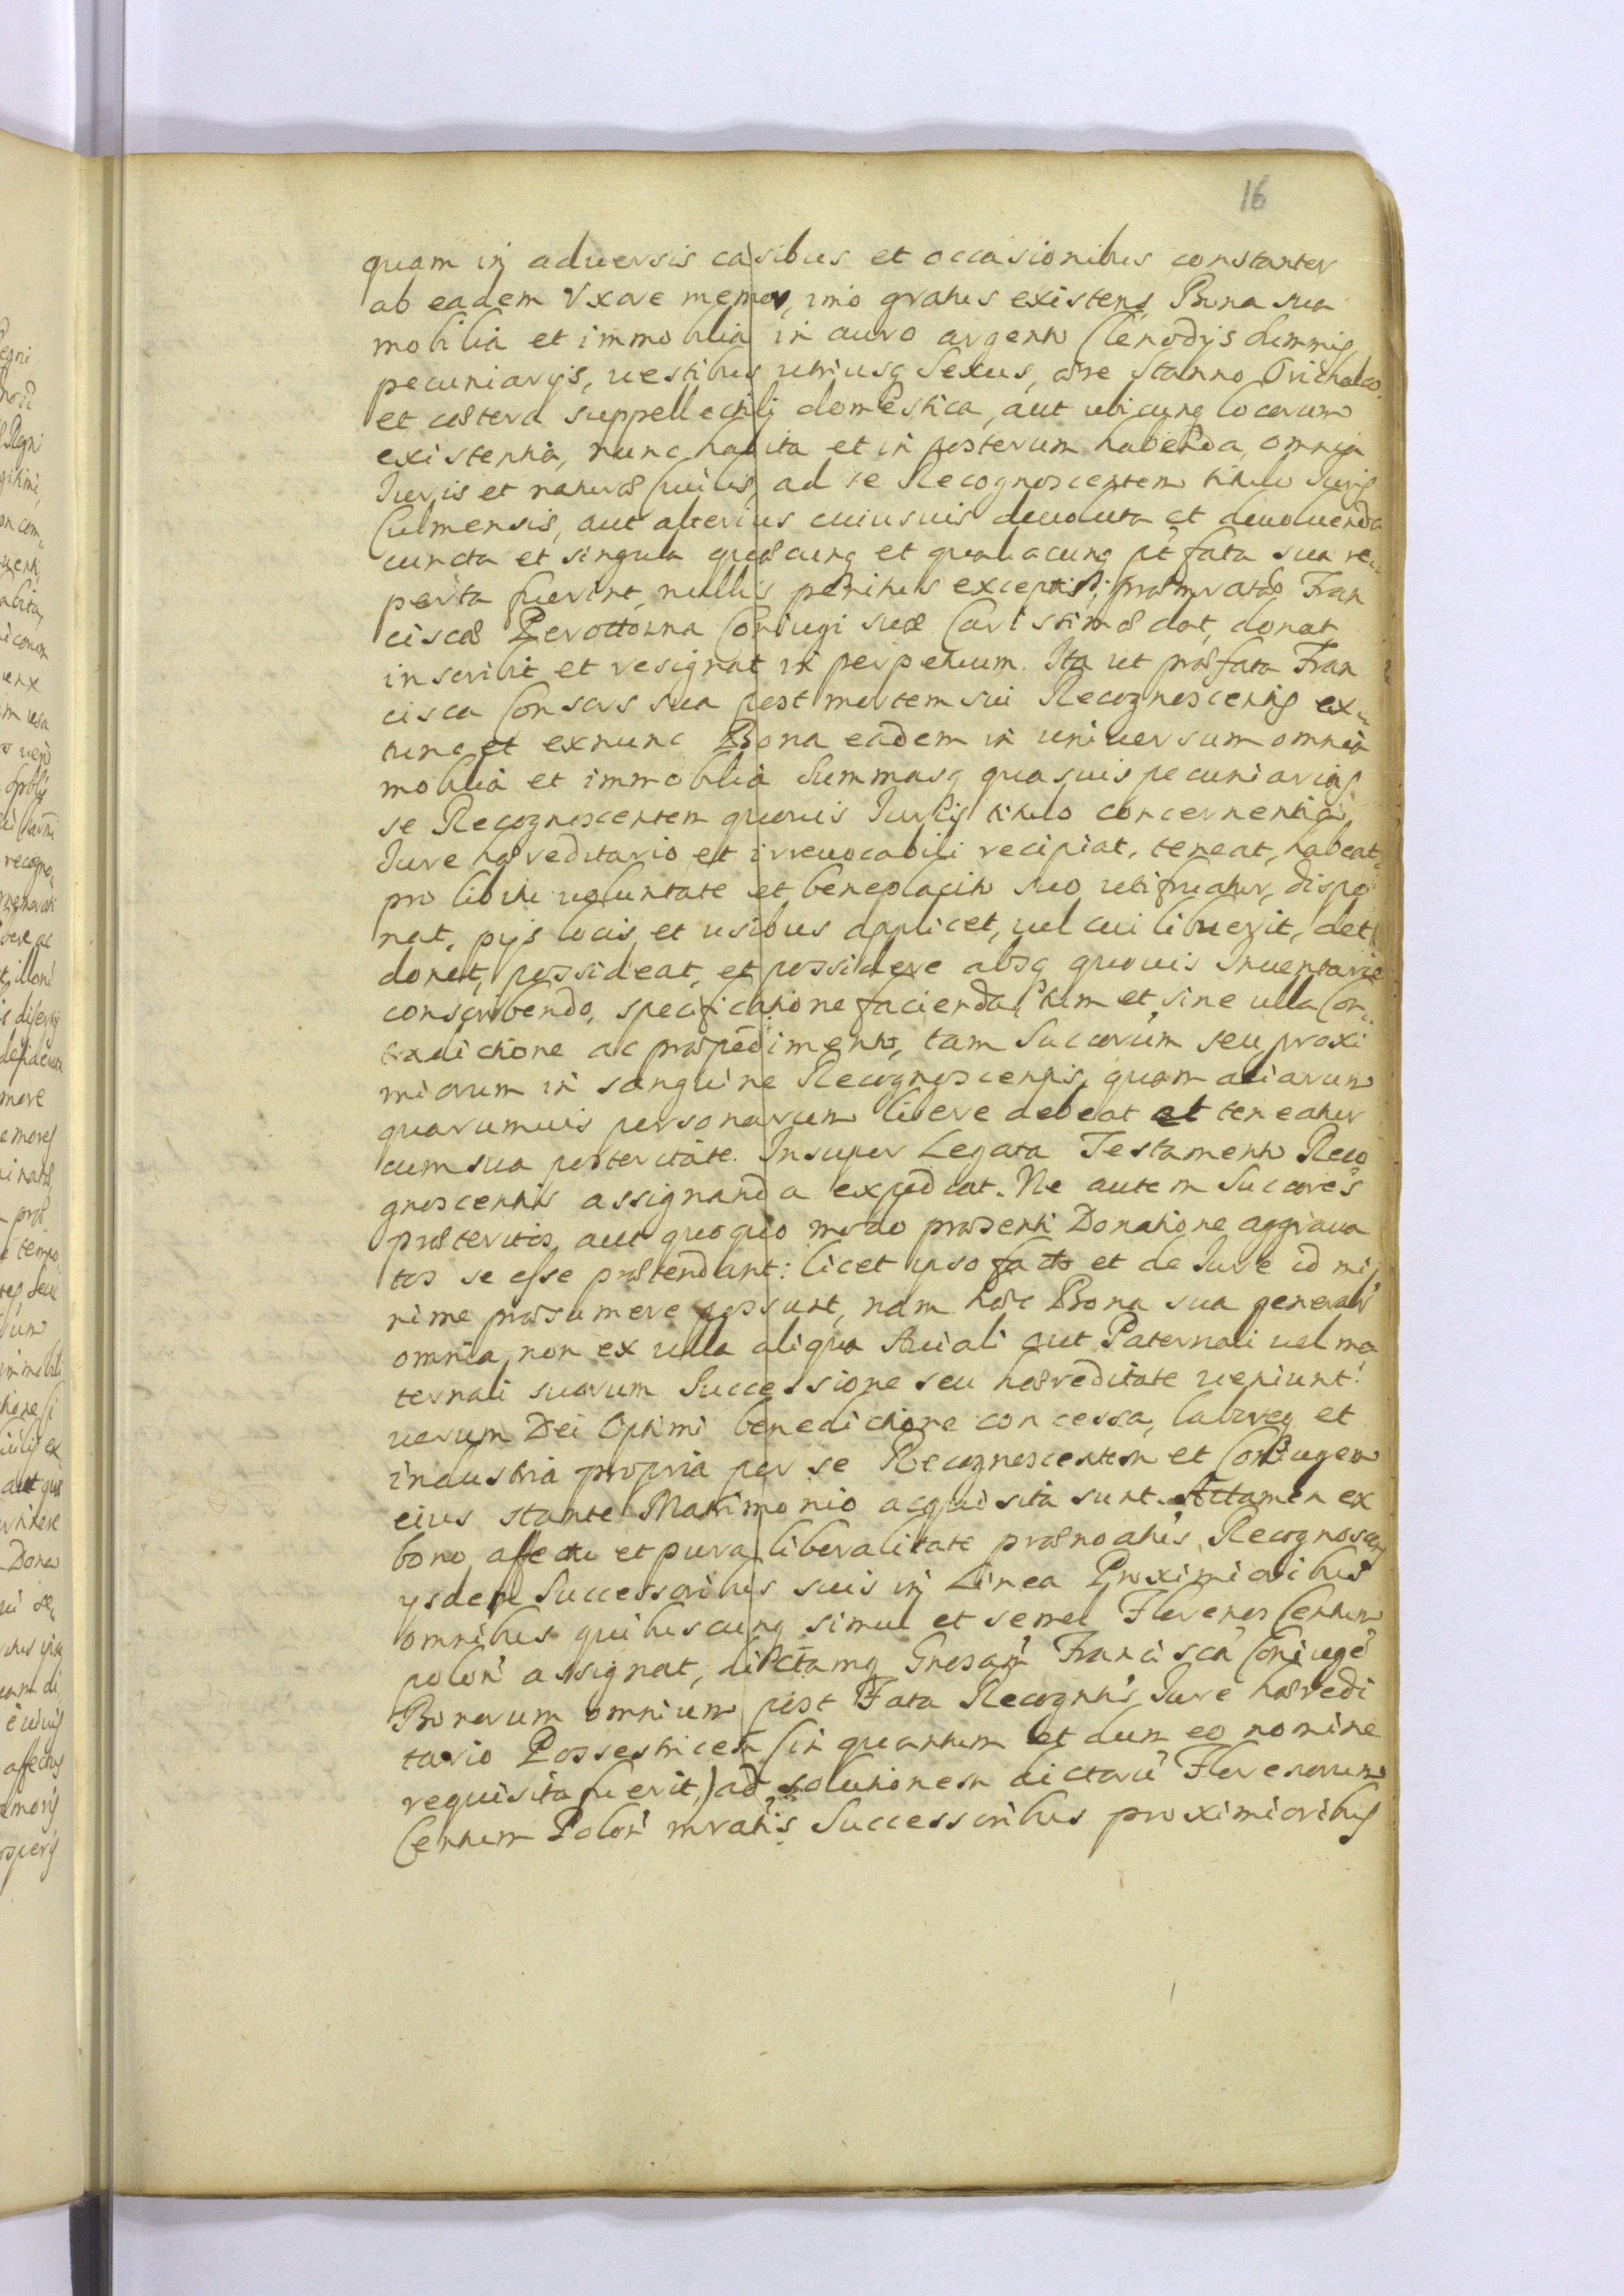 16
quam in aduersis casibus et occasionibus constanter
ab eadem Vxore memor, imò gratus existens, Bona sua
mobilia et immobilia in auro argento Clenodijs summis
pecuniarijs, uestibus utriusq Sexus, ære Stanno Orichalco
et cætera suppellectili domestica, aut ubicunq locorum
existentia, nunc habita et in posterum habenda, omnia
Iuris et naturæ ciuilis, ad se Recognoscentem titulo Iuris
Culmensis, aut alterius cuiusuis deuoluta et deuoluenda
cuncta et singula quæcunq et qualiacunq pt fata sua re„
perta fuerint, nullis penitus exceptis, præmratæ Fran
ciscæ Perottowna Coniugi suæ Carissimæ dat, donat
inscribit et resignat in perpetuum. Ita ut præfata Fran
cisca Consors sua post mortem sui Recognoscentis ex„
tunc et exnunc Bona eadem in uniuersum omnia
mobilia et immobilia Summasq quasuis pecuniarias
se Recognoscentem quouis Iuris titulo concernentia,
Iure hæreditario et irreuocabili recipiat, teneat, habeat,
pro libitu uoluntate et beneplacito suo utifruatur, dispo
nat, pijs locis et usibus applicet, uel cui libuerit, det
donet, possideat, et possidere absq quouis Inuentario
conscribendo, specificatione facienda, tum et sine ulla Con„
tradictione ac præpedimento, tam Succorum seu proxi
miorum in sanguine Recognoscentis, quam aliarum
quarumuis personarum libere debeat et teneatur
cum sua posteritate. Insuper Legata Testamento Reco
gnoscentis assignanda expediat. Ne autem Succores
præteritos, aut quoquo modo præsenti Donatione aggraua
tos se esse prætendant: licet ipso facto et de Iure id mi
nime præsumere possunt, nam hæc Bona sua generalr
omnia, non ex ulla aliqua Auiali aut Paternali uel ma
ternali suorum Successione seu hæreditate ueniunt:
uerum Dei Optimi benedictione concessa, labore et
industria propria per se Recognoscentem et Coniugem
eius stante Matrimonio acquisita sunt. Attamen ex
bono affectu et pura liberalitate prænoatus Recognoscens
ysdem Successoribus suis in Linea Proximioribus
omnibus quibuscunq simul et semel Florenos Centum
polon assignat, dictamq Gnosam Francisca Coniuge
Bonorum omnium post Fata Recogntis Iure hæredi
tario Possestricem (in quantum et dum eo nomine
requisita fuerit,) ad solutionem dictorum Florenorum
Centum Polon mratis Successoribus proximioribus